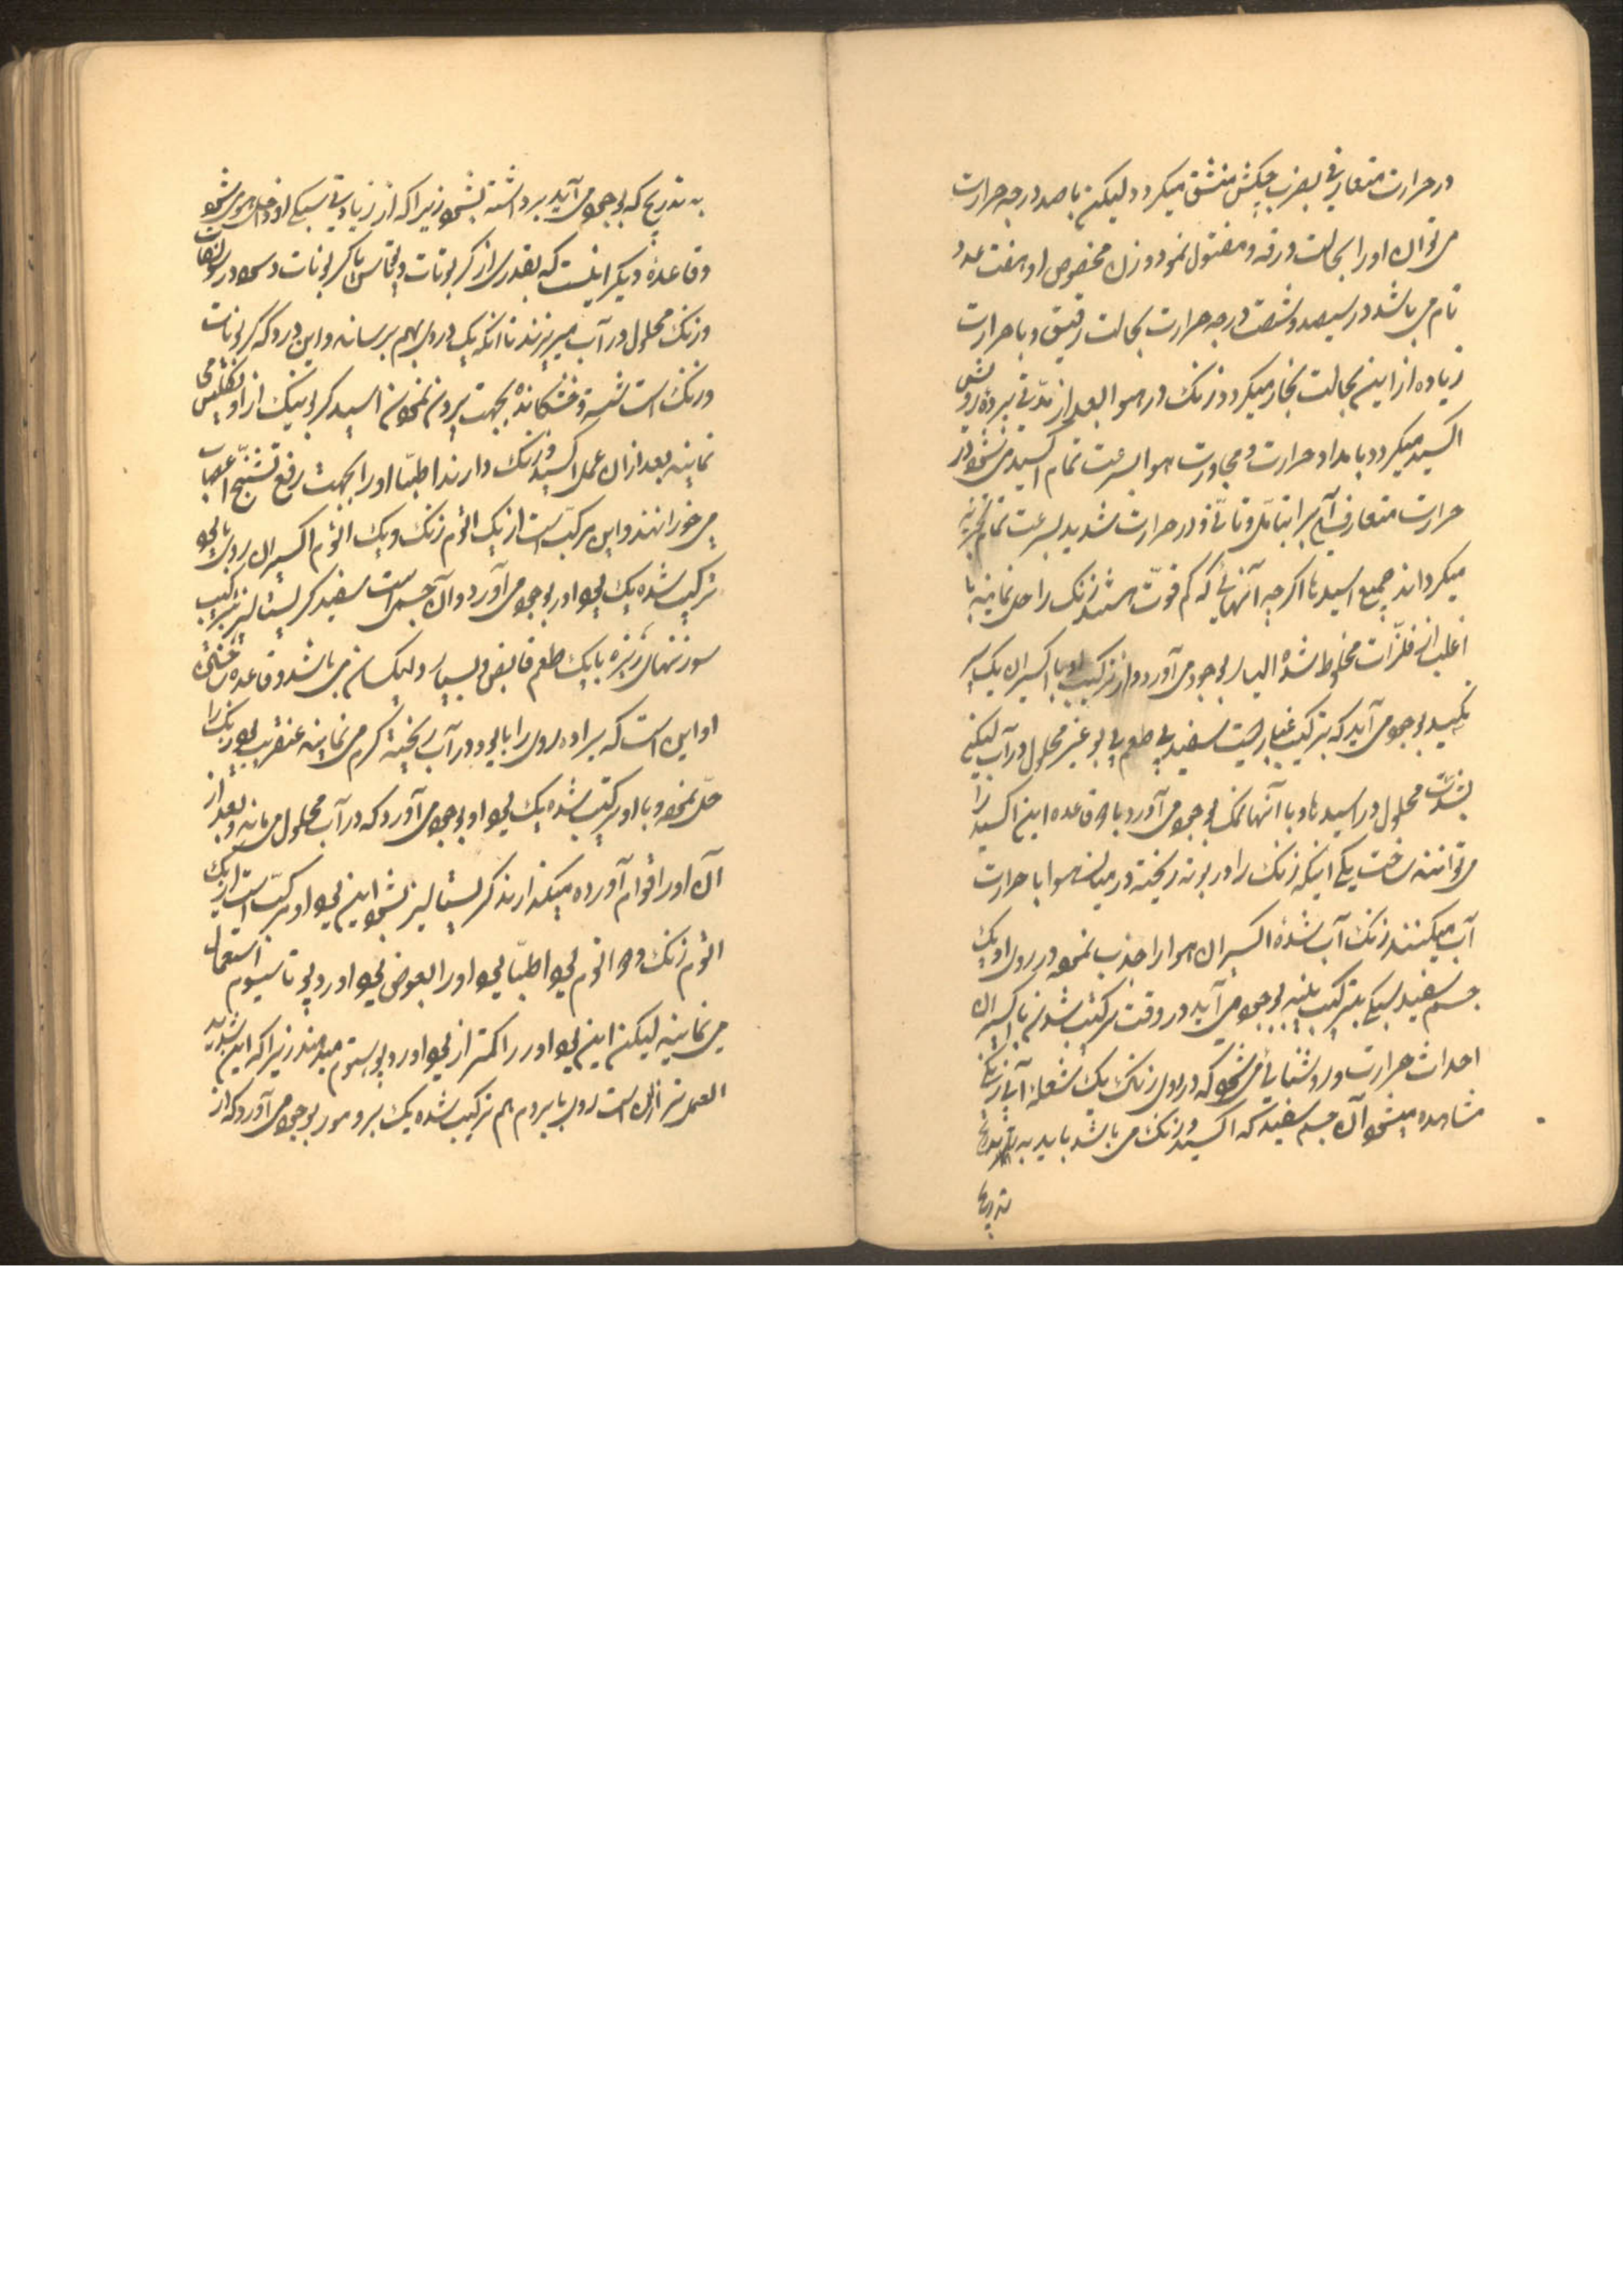 در حرارت متعارفی بضرب چکش منشق میکردد لیکن با صد درجه حرارت
می توان او را بحالت ورقه و مفتول نمود وزن مخصوص او هفت عدد
تام می باشد در سیصد و شصت درجه حرارت بحالت رقیق و با حرارت
زیاده از این بحالت بخار میکردد زنک در هوا بعد از مدتی تیره
اکسید میکردد با مداد حرارت و مجاورت هوا بسرعت تمام اکسید می شود در
حرارت متعارفی آب را بتامل و تأنی و در حرارت شدید بسرعت تمام تجزیه
میکرداند جمیع اسید ها اکرچه آنهائی که کم قوت باشند زنک را حل نمایند با
اغلب از فلزات مخلوط شده الیاژ بوجود می آورد و از ترکیب او با اکسیژن یک
اکسید بوجود می آید که بترکیب غباریست سفید بی طعم بی بو غیر محلول در آب لیکن
بشدت محلول در اسید ها و با آنها نمک بوجود می آورد با دو قاعده این اکسید را
می توانند ساخت یکی اینکه زنک را در بوته ریخته در میان هوا با حرارت
آب میکنند زنک آب شده اکسیژن هوا را جذب نموده در روی او یک
جسم سفید سبکی بترکیب پنبه بوجود می آید در وقت مرکب شدن با اکسیژن
احداث حرارت و روشنائی می شود که در روی زنک یک شعله آبی رنکی
مشاهده میشود آن جسم سفید که اکسید زنک می باشد باید به
بتدریج
به تدریج که بوجود می آید برداشته شود زیرا که از زیادتی سبکی او داخل هوا می شود
و قاعده دیکر اینست که بقدری از کربونات پوتاس یا کربونات دسود در سولفات
دزنک محلول در آب میریزند تا آنکه یک دردی بهم برساند و این درد که کربونات
دزنک است شسته و خشکانده بجهت بیرون نمودن اسید کربونیک از او
نمایند بعد از آن عمل اکسید دزنک دارند اطبا او را بجهت رفع تشنج اعصاب
می خورانند و این مرکب است از یک اتوم زنک و یک اتوم اکسیژن روی با یود
ترکیب شده یک یودور بوجود می آورد و آن جسمی است سفید کریستالیز بترکیب
سوزنهای ریزه با یک طعم قابض و بسیار می باشد و قاعده ساختن
او این است که براده روی را با یود در آب ریخته کرم می نمایند عنقریب یود زنک را
حل نموده و با او مرکب شده یک یودور بوجود می آورد که در آب محلول می ماند و بعد از
آن او را قوام آورده میکذارند کریستالیز بشود این یودور مرکب است از یک
اتوم زنک و دو اتوم یود اطبا او را بعوض یودور دپوتاسیوم استعمال
می نمایند لیکن این یودور را کمتر از یودور دپوتاسیوم میدهند زیرا که این شدید
العمل تر از آن است روی با بروم هم ترکیب شده یک برومور بوجود می آورد که از